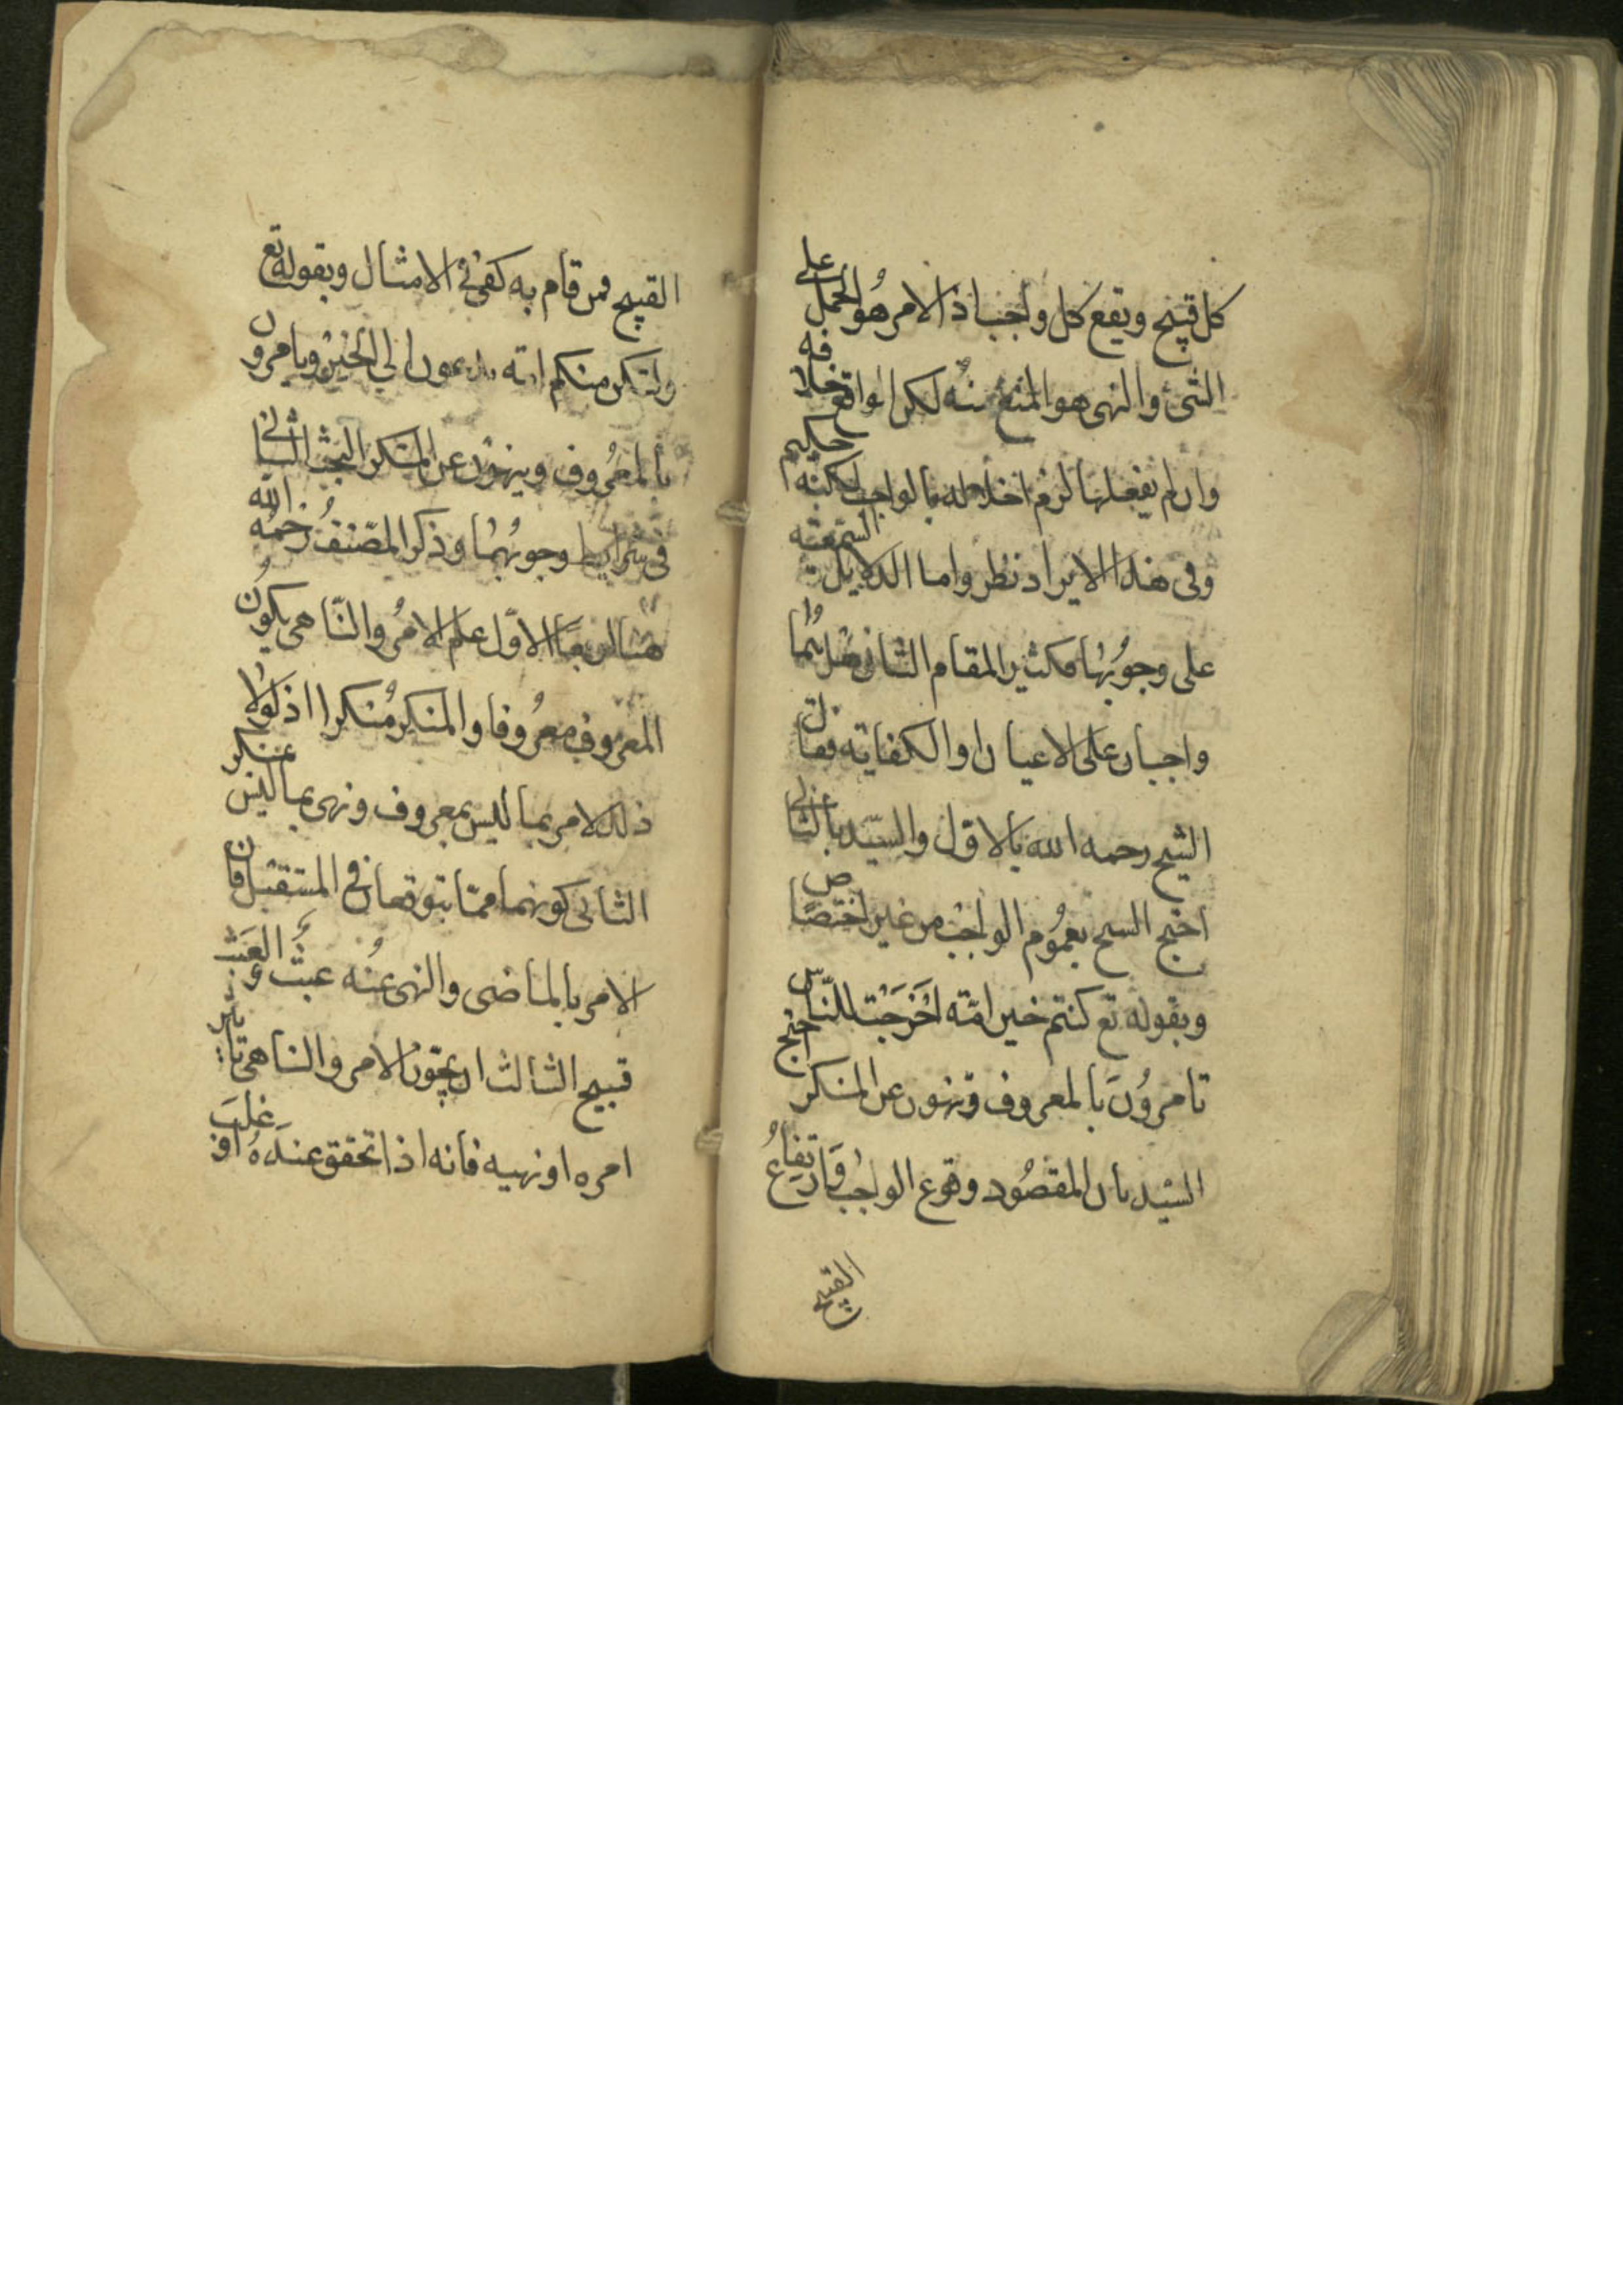 كل قبيح ويقع كل واجب اذ الامر هو الحمل على
الشئ والنهى هو المنع منه لكن الواقع خلافه
وان لم يفعلها لزم اخلاله بالواجب لكنه حكيم
وفى هذا الايراد نظر واما الدلايل السمعية
على وجوبهما فكثير المقام الثانى هل هما
واجبان على الاعيان او الكفاية فقال
الشيخ رحمه الله بالاول والسيد بالثانى
احتج الشيخ بعموم الواجب من غير اختصاص
وبقوله تع كنتم خير امة اخرجت للناس
تامرون بالمعروف وتنهون عن المنكر احتج
السيد بان المقصود وقوع الواجب وارتفاع
القبيح
القبيح فمن قام به كفى فى الامتثال وبقوله تع
ولتكن منكم امة يدعون الى الخير ويامرون
بالمعروف وينهون عن المنكر البحث الثانى
فى شرايط وجوبهما وذكر المصنف رحمه الله
هنا اربعا الاول علم الامر والناهى بكون
المعروف معروفا والمنكر منكرا اذ لولا
ذلك لامر بما ليس بمعروف ونهى عما ليس بمنكر
الثانى كونهما مما يتوقعان فى المستقبل فان
الامر بالماضى والنهى عنه عبث والعبث
قبيح الثالث ان يجوز الامر والناهى تاثير
امره او نهيه فانه اذا تحقق عنده او غلب